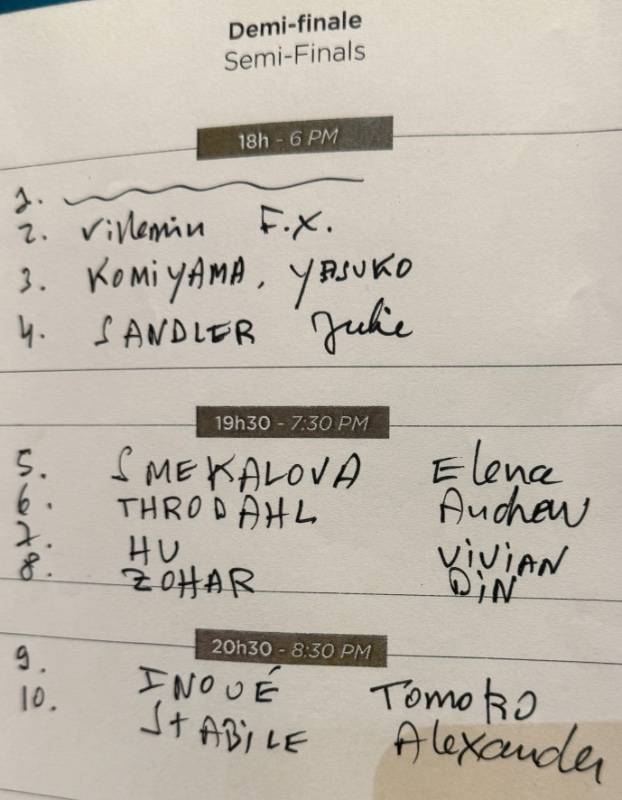 Demi-finale
Semi-Finals
18h - 6 PM
1.
2. Villemin F.X.
3. KOMIYAMA, YASUKO
4. SANDLER Julie
19h30 - 7:30 PM
5. SMEKALOVA Elena
6. THRODAHL Andrew
7. HU ViViAN
8. ZOHAR DiN
20h30 - 8:30 PM
9. INOUÉ TOMOKO
10. StABiLE Alexander